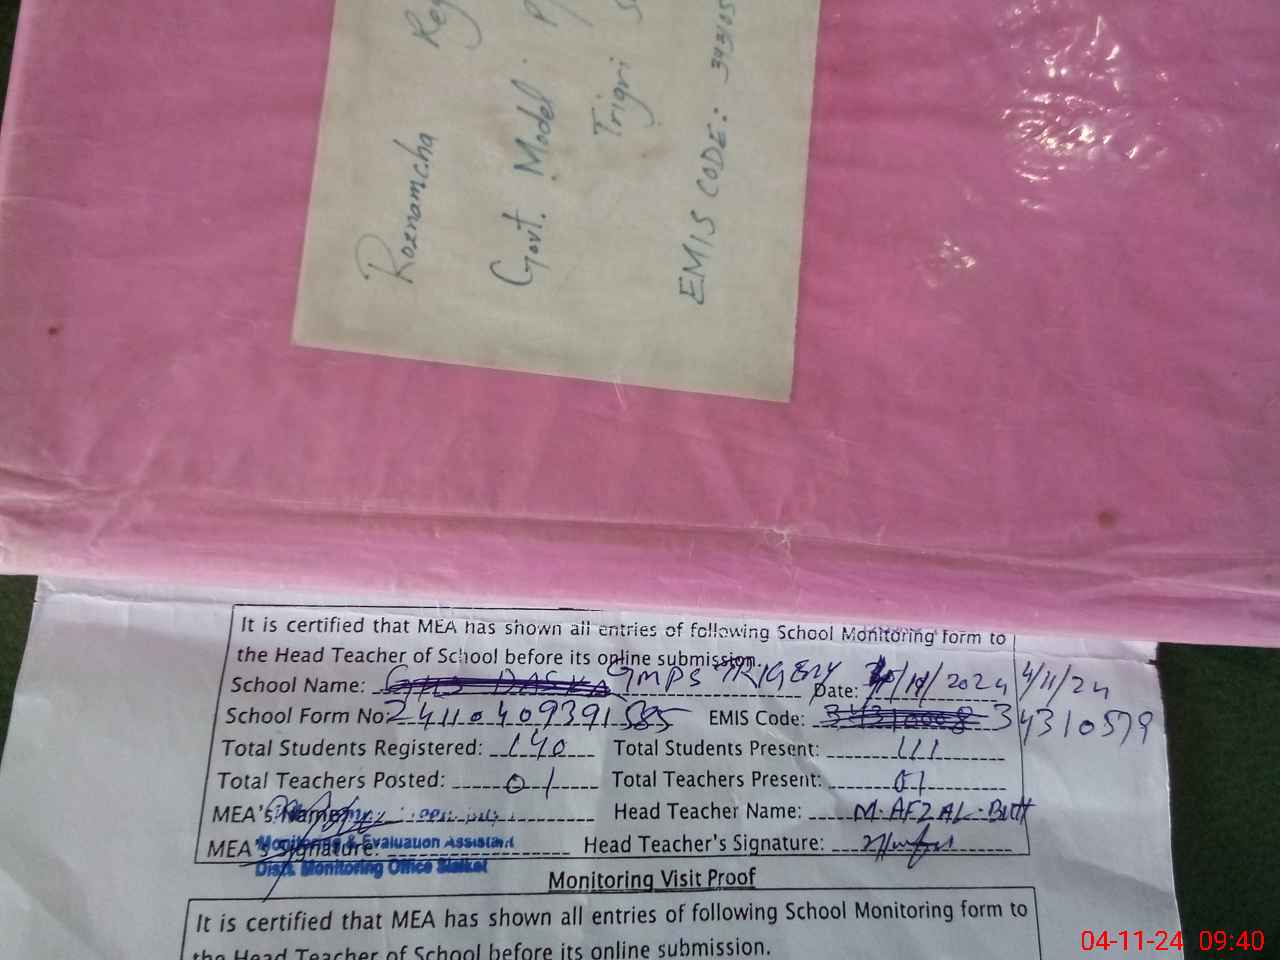 Roznamcha Reg
Govt. Model P/
Trigri
EMIS CODE: 343105
It is certified that MEA has shown all entries of following School Monitoring form to
the Head Teacher of School before its online submission.
School Name: GHS DASKA GMPS TRIGERY Date: /11/2024 4/11/24
School Form No: 24110409391585 EMIS Code: 34310008 34310579
Total Students Registered: 140 Total Students Present: 111
Total Teachers Posted: 01 Total Teachers Present: 01
MEA's Name: Head Teacher Name: M-AFZAL-Butt
Monitoring & Evaluation Assistant
MEA's Signature: Head Teacher's Signature:
Distt. Monitoring Office Sialkot
Monitoring Visit Proof
It is certified that MEA has shown all entries of following School Monitoring form to
the Head Teacher of School before its online submission.
04-11-24 09:40